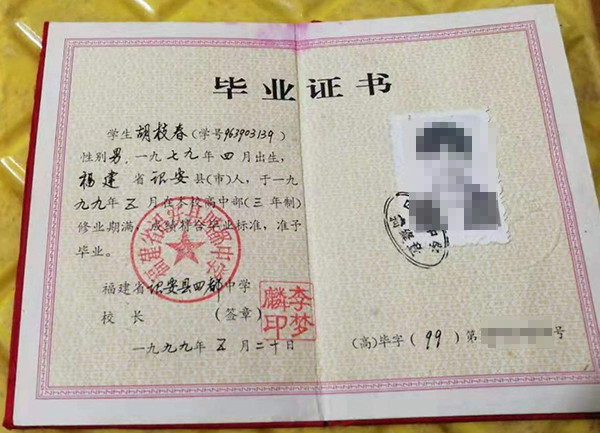 毕业证书
学生 胡枝春 (学号963903139)
性别男,一九七九年四月出生,
福建省诏安县(市)人,于一九
九九年五月在本校高中部(三年制)
修业期满,成绩符合毕业标准,准予
毕业。
福建省诏安县四都中学
校长 (签章)
李梦
麟印
一九九九年五月二十日
福建省诏安县四都中学
(高)毕字(99)第 号